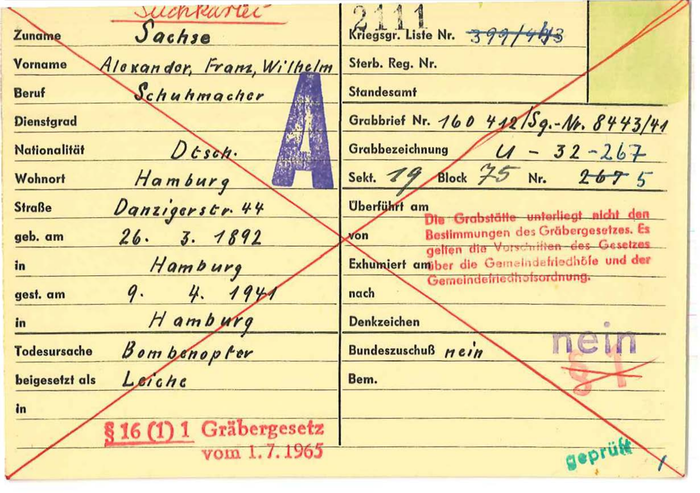 Suchkartei
Zuname Sachse
Vorname Alexander, Franz, Wilhelm
Beruf Schuhmacher
Dienstgrad
Nationalität Dtsch.
Wohnort Hamburg
Straße Danzigerstr. 44
geb. am 26. 3. 1892
in Hamburg
gest. am 9. 4. 1941
in Hamburg
Todesursache Bombenopfer
beigesetzt als Leiche
in
§ 16 (1) 1 Gräbergesetz
vom 1.7.1965
A
2111
Kriegsgr. Liste Nr.
Sterb. Reg. Nr.
Standesamt
Grabbrief Nr. 160 412/Sg.-Nr. 8443/41
Grabbezeichnung U - 32 - 267
Sekt. 19 Block 75 Nr. 267 5
Überführt am
von
Exhumiert am
nach
Die Grabstätte unterliegt nicht den
Bestimmungen des Gräbergesetzes. Es
gelten die Vorschriften des Gesetzes
über die Gemeindefriedhöfe und der
Gemeindefriedhofsordnung.
Denkzeichen
Bundeszuschuß nein
nein
§ 1
Bem.
geprüft